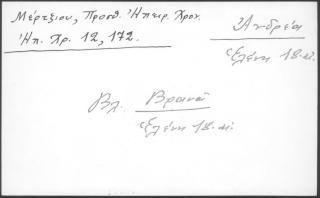 Μέρτζιου, Προσθ. Ἠπειρ. Χρον.
Ἠπ. Χρ. 12, 172.
Ἀνδρέα
Ἑλένη 18. αἰ.
Βλ. Βρανᾶ
Ἑλένη 18. αἰ.